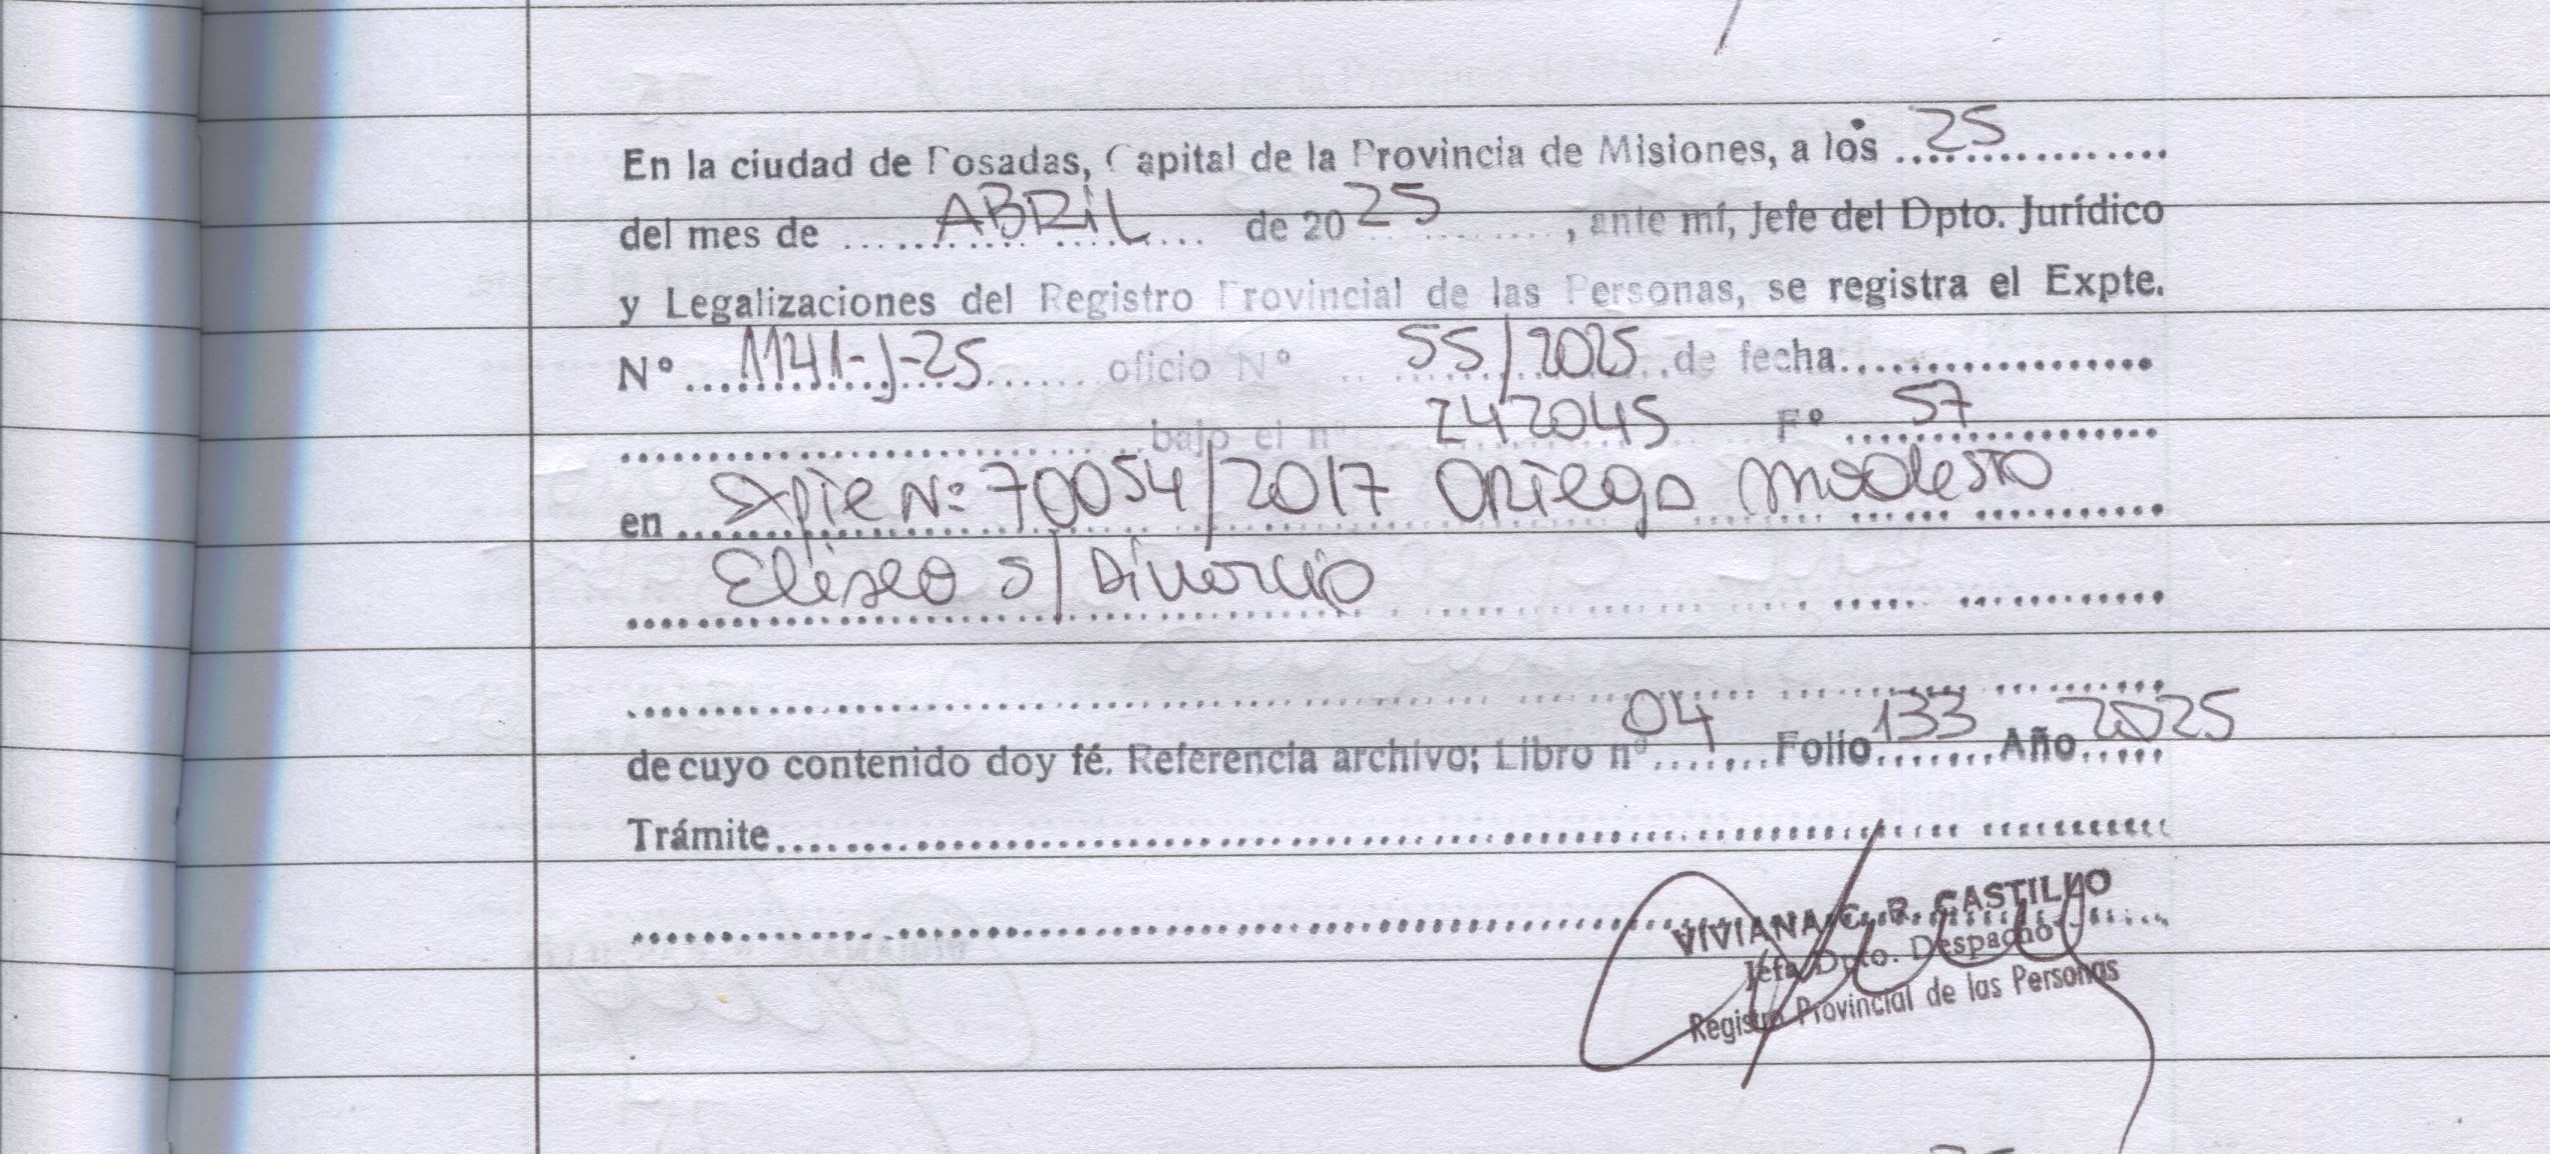 En la ciudad de Posadas, Capital de la Provincia de Misiones, a los 25
del mes de ABRIL de 2025, ante mí, Jefe del Dpto. Jurídico
y Legalizaciones del Registro Provincial de las Personas, se registra el Expte.
Nº 1141-J-25 oficio Nº 55/2025 de fecha
bajo el nº 242045 Fº 57
en Expte Nº: 70054/2017 Ortega Modesto
Eliseo s/ Divorcio
de cuyo contenido doy fé. Referencia archivo; Libro nº 04 Folio 133 Año 2025
Trámite
VIVIANA C. R. CASTILLO
Jefa Dpto. Despacho
Registro Provincial de las Personas